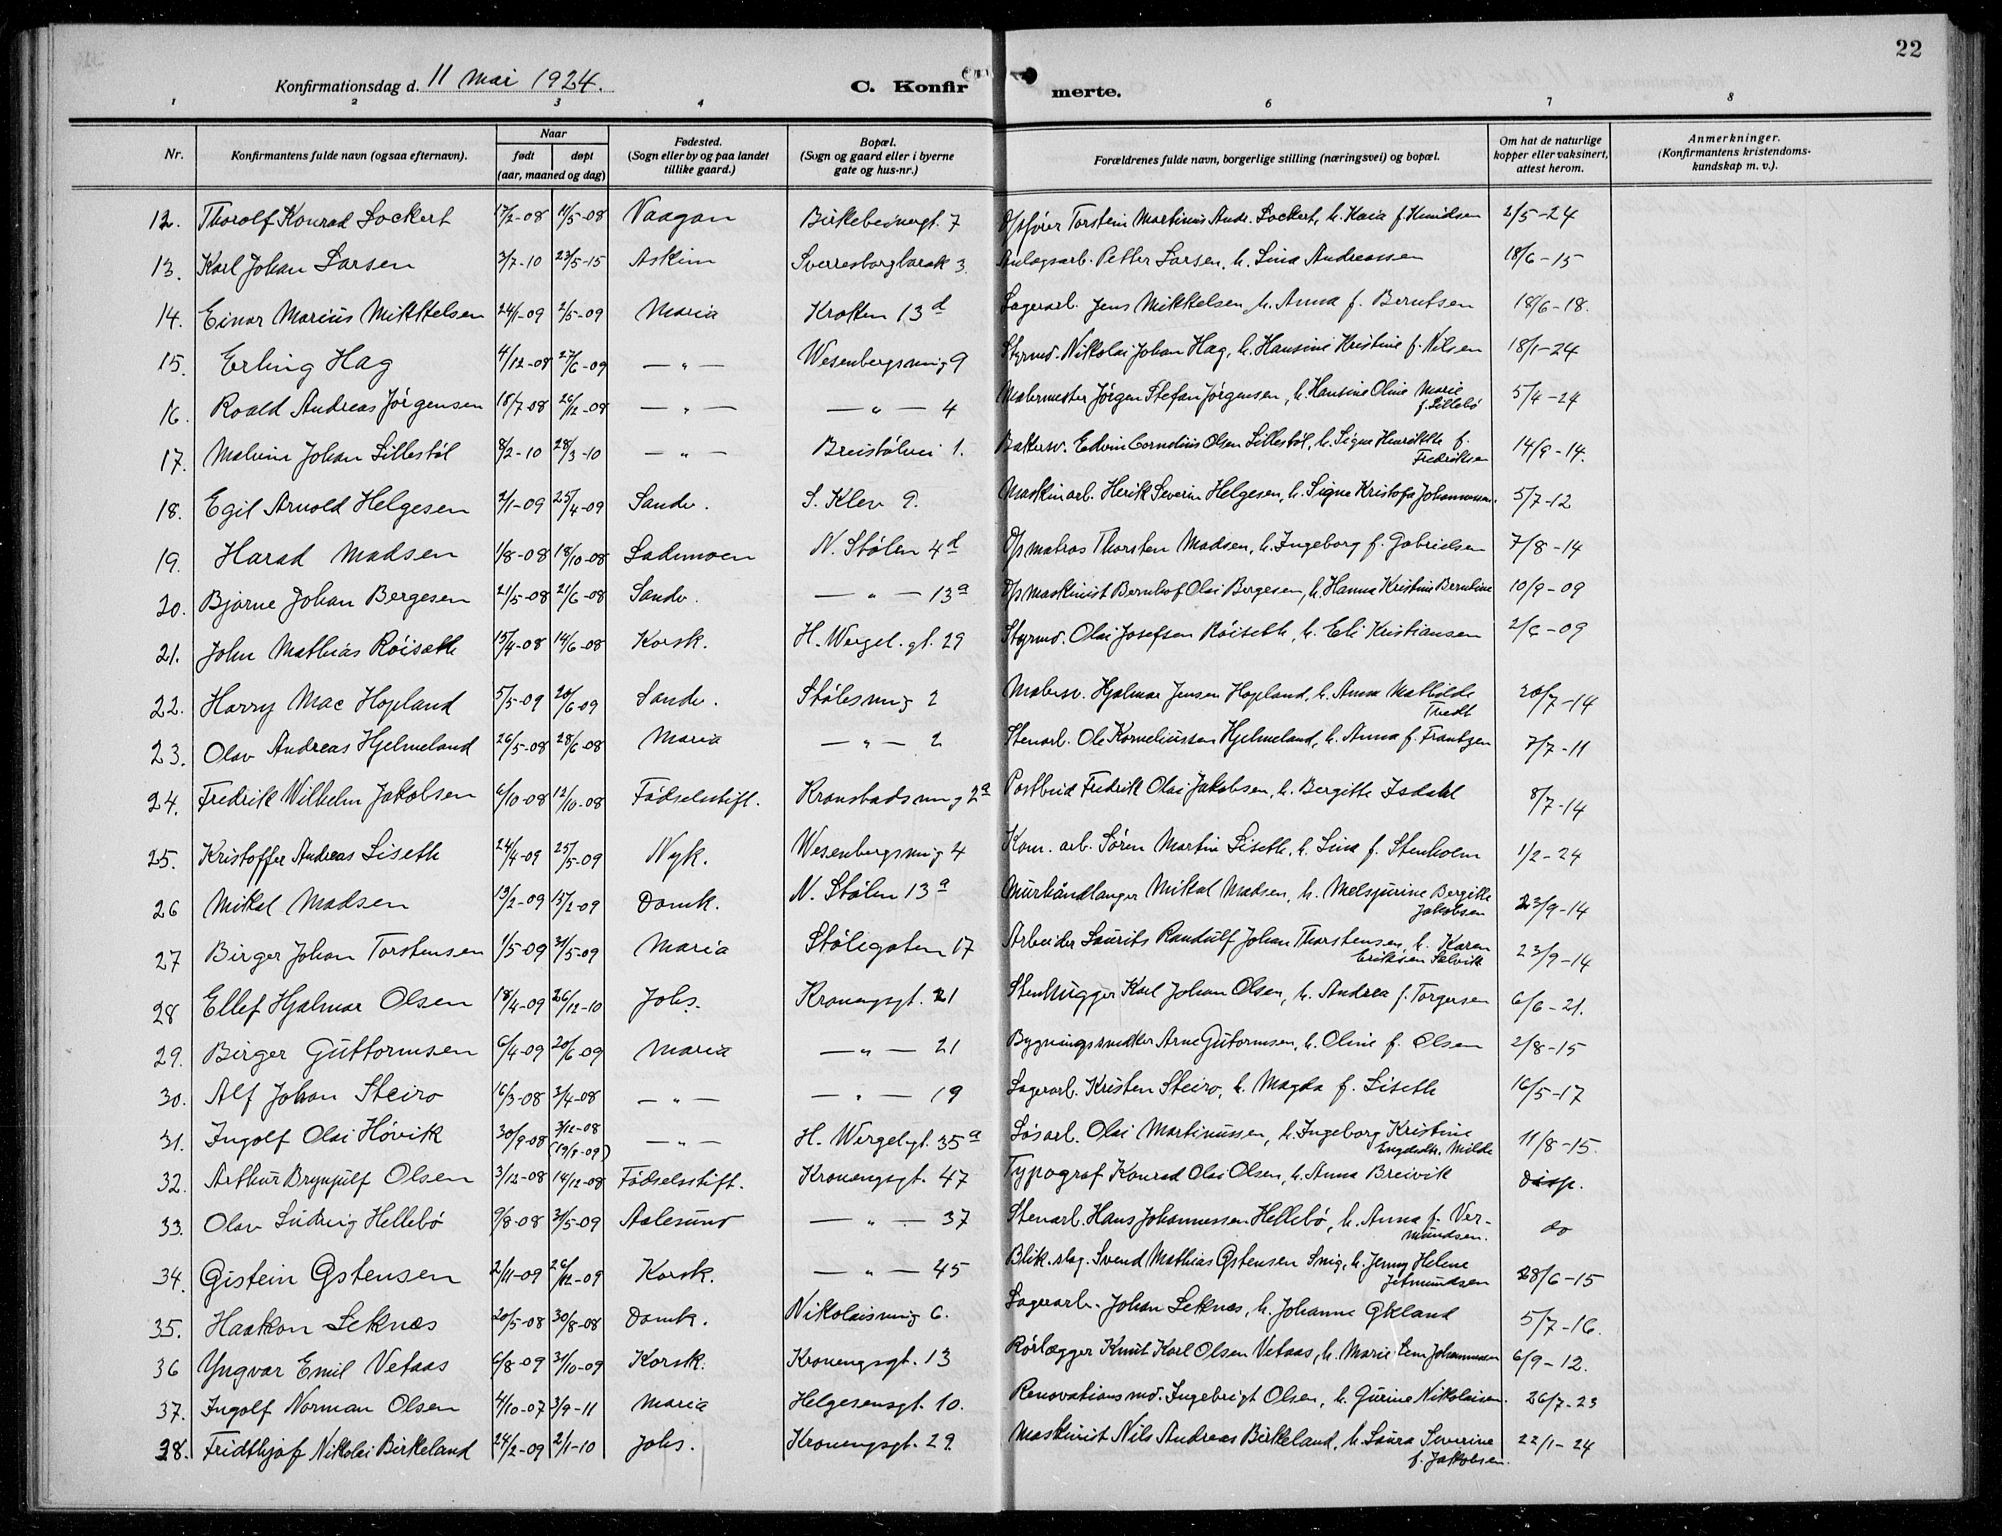 22
Konfirmationsdag d. 11 mai 1924. C. Konfirmerte.
1 2 3 4 6 7 8
Nr. Konfirmantens fulde navn (ogsaa efternavn). Naar født døpt (aar, maaned og dag) Fødested. (Sogn eller by og paa landet tillike gaard.) Bopæl. (Sogn og gaard eller i byerne gate og hus-nr.) Forældrenes fulde navn, borgerlige stilling (næringsvei) og bopæl. Om hat de naturlige kopper eller vaksinert, attest herom. Anmerkninger. (Konfirmantens kristendomskundskap m. v.).
12. Thorolf Konrad Lockert 17/2-08 11/5-08 Vaagan Birkebeinergt. 7 Torstein Martinus Andr. Lockert, h. Kaia f. Knudsen 2/5-24
13. Karl Johan Larsen 3/7-10 23/5-15 Askim Sverresborgbarak 3. Anlagsarb. Petter Larsen, h. Lina Andreassen 18/6-15
14. Einar Marius Mikkelsen 24/1-09 2/5-09 Maria Krotten 13d Lagerarb. Jens Mikkelsen, h. Anna f. Berntsen 18/6-18.
15. Erling Hag 4/12-08 27/6-09 — " — Wesenbergsmug 9 Styrmd. Nikolai Johan Hag, h. Hansine Kristine f. Nilsen 18/1-24
16. Roald Andreas Jørgensen 18/7-08 26/12-08 — " — — " — 4 Malermester Jørgen Stefan Jørgensen, h. Hansine Oline Marie f. Lillebø 5/4-24
17. Malvin Johan Lillestøl 8/2-10 28/3-10 — " — Breistølvei 1. Bakersv. Edvin Cornelius Olsen Lillestøl, h. Signe Henrikke f. Fredriksen 14/9-14.
18. Egil Arnold Helgesen 2/1-09 25/4-09 Sandv. S. Klev 9. Maskinarb. Herik Severin Helgesen, h. Signe Kristofa Johannessen. 5/7-12
19. Harad Madsen 1/8-08 18/10-08 Lademoen N. Stølen 4d D/s matros Thorsten Madsen, h. Ingeborg f. Gabrielsen 7/8-14
20. Bjarne Johan Bergesen 21/5-08 21/6-08 Sandv. — " — 13a D/s maskinist Bernhof Olai Bergesen, h. Hanna Kristine Berntine 10/9-09
21. John Mathias Røiseth 15/4-08 14/6-08 Korsk. H. Wergel. gt. 29 Styrmd. Olai Josefsen Røiseth, h. Eli Kristiansen 2/6-09
22. Harry Mac Hopland 5/5-09 20/6-09 Sandv. Stølesmug 2 Malersv. Hjalmar Jensen Hopland, h. Anna Mathilde Tvedt 20/7-14
23. Olav Andreas Hjelmeland 26/5-08 28/6-08 Maria — " — 2 Stenarb. Ole Korneliussen Hjelmeland, h. Anna f. Frantzen 7/7-11
24. Fredrik Wilhelm Jakobsen 6/10-08 12/10-08 Fødselsstift. Kronstadsmug 2a Postbud Fredrik Olai Jakobsen, h. Bergitte Isdahl 8/7-14
25. Kristoffer Andreas Liseth 24/4-09 25/5-09 Nyk. Wesenbergsmug 4 Kom. arb. Søren Martin Liseth, h. Lina f. Stenholm 1/2-24
26 Mikal Madsen 13/2-09 15/2-09 Domk. N. Stølen 13a Murhåndlanger Mikal Madsen, h. Bergitte Jakobsen 23/9-14
27 Birger Johan Torstensen 1/5-09 31/5-09 Maria Stølegaten 17 Arbeider Laurits Randulf Johan Thorstensen, h. Karen Eriksen Selvik 23/9-14
28 Ellef Hjalmar Olsen 18/4-09 26/12-10 Johs. Kronengsgt. 21 Stenhugger Karl Johan Olsen, h. Andrea f. Torgersen 6/6-21.
29. Birger Guttormsen 6/4-09 20/6-09 Maria — " — 21 Bygningssnedker Arne Gutormsen, h. Oline f. Olsen 2/8-15
30. Alf Johan Steiro 16/3-08 3/4-08 — " — — " — 19 Lagerarb. Kristen Steiro, h. Magda f. Liseth 16/5-17
31. Ingolf Olai Høvik 30/9-08 3/12-08 (19/9-09) — " — H. Wergel.gt. 35a Løsarb. Olai Martinussen, h. Ingeborg Kristine Engdr. Milde 11/8-15.
32. Arthur Brynjulf Olsen 3/12-08 14/12-08 Fødselsstift. Kronengsgt. 47 Typograf Konrad Olai Olsen, h. Anna Breivik disp.
33. Olav Ludvig Hellebø 9/8-08 31/5-09 Aalesund — " — 37 Stenarb. Hans Johannessen Hellebø, h. Anna f. Vermundsen. do
34. Gistein Østensen 2/11-09 26/12-09 Korsk. — " — 45 Blik.slag. Svend Mathias Østensen Snig, h. Jenny Helene Jetmundsen 28/6-15
35. Haakon Leknes 20/5-08 30/8-08 Domk. Nikolaismug 6. Lagerarb. Johan Leknes, h. Johanne Økland 5/7-16.
36 Yngvar Emil Vetaas 6/8-09 31/10-09 Korsk. Kronengsgt. 13 Rørlægger Knut Karl Olsen Vetaas, h. Marie Lem Johannessen 6/9-12.
37. Ingolf Norman Olsen 4/10-07 3/9-11 Maria Helgesensgt. 10. Renovationsmd. Ingebrigt Olsen, h. Gurine Nikolaisen. 26/7-23
38. Fridthjof Nikolai Birkeland 24/2-09 2/1-10 Johs. Kronengsgt. 29. Maskinist Nils Andreas Birkeland, h. Laura Severine f. Jakobsen. 22/1-24